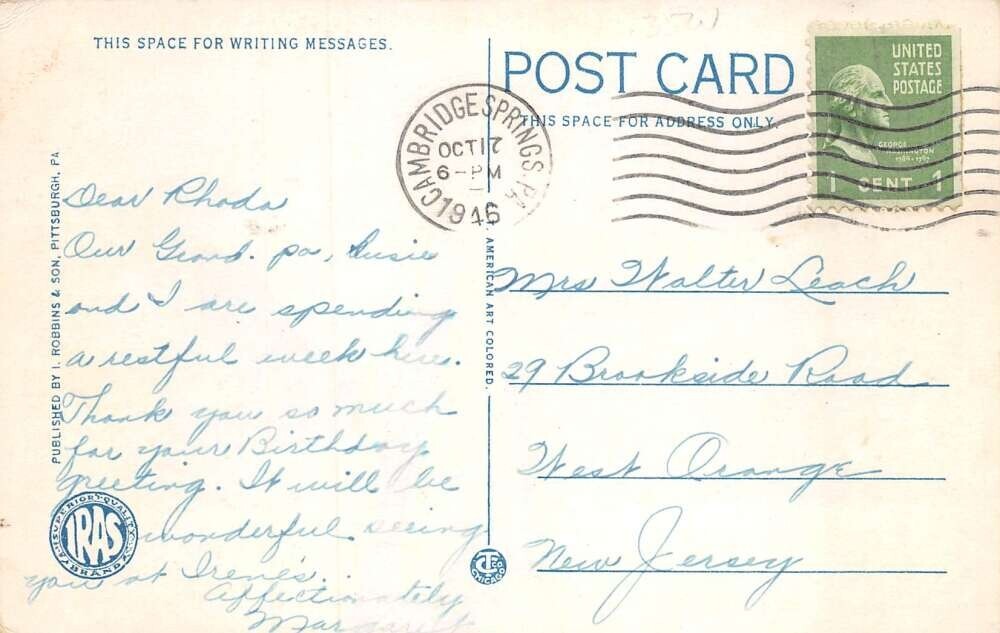 THIS SPACE FOR WRITING MESSAGES.
POST CARD
THIS SPACE FOR ADDRESS ONLY.
UNITED
STATES
POSTAGE
GEORGE
WASHINGTON
1789-1797
1 CENT 1
CAMBRIDGE SPRINGS, PA.
OCT 17
6-PM
1946
Dear Rhoda
Our Grand. pa, Susie
and I are spending
a restful week here.
Thank you so much
for your Birthday
greeting. It will be
wonderful seeing
you at Irene's.
Affectionately
Margaret
Mrs Walter Leach
29 Brookside Road
West Orange
New Jersey
PUBLISHED BY I. ROBBINS & SON, PITTSBURGH, PA
SUPERIOR QUALITY
IRAS
BRAND
AMERICAN ART COLORED.
CHICAGO